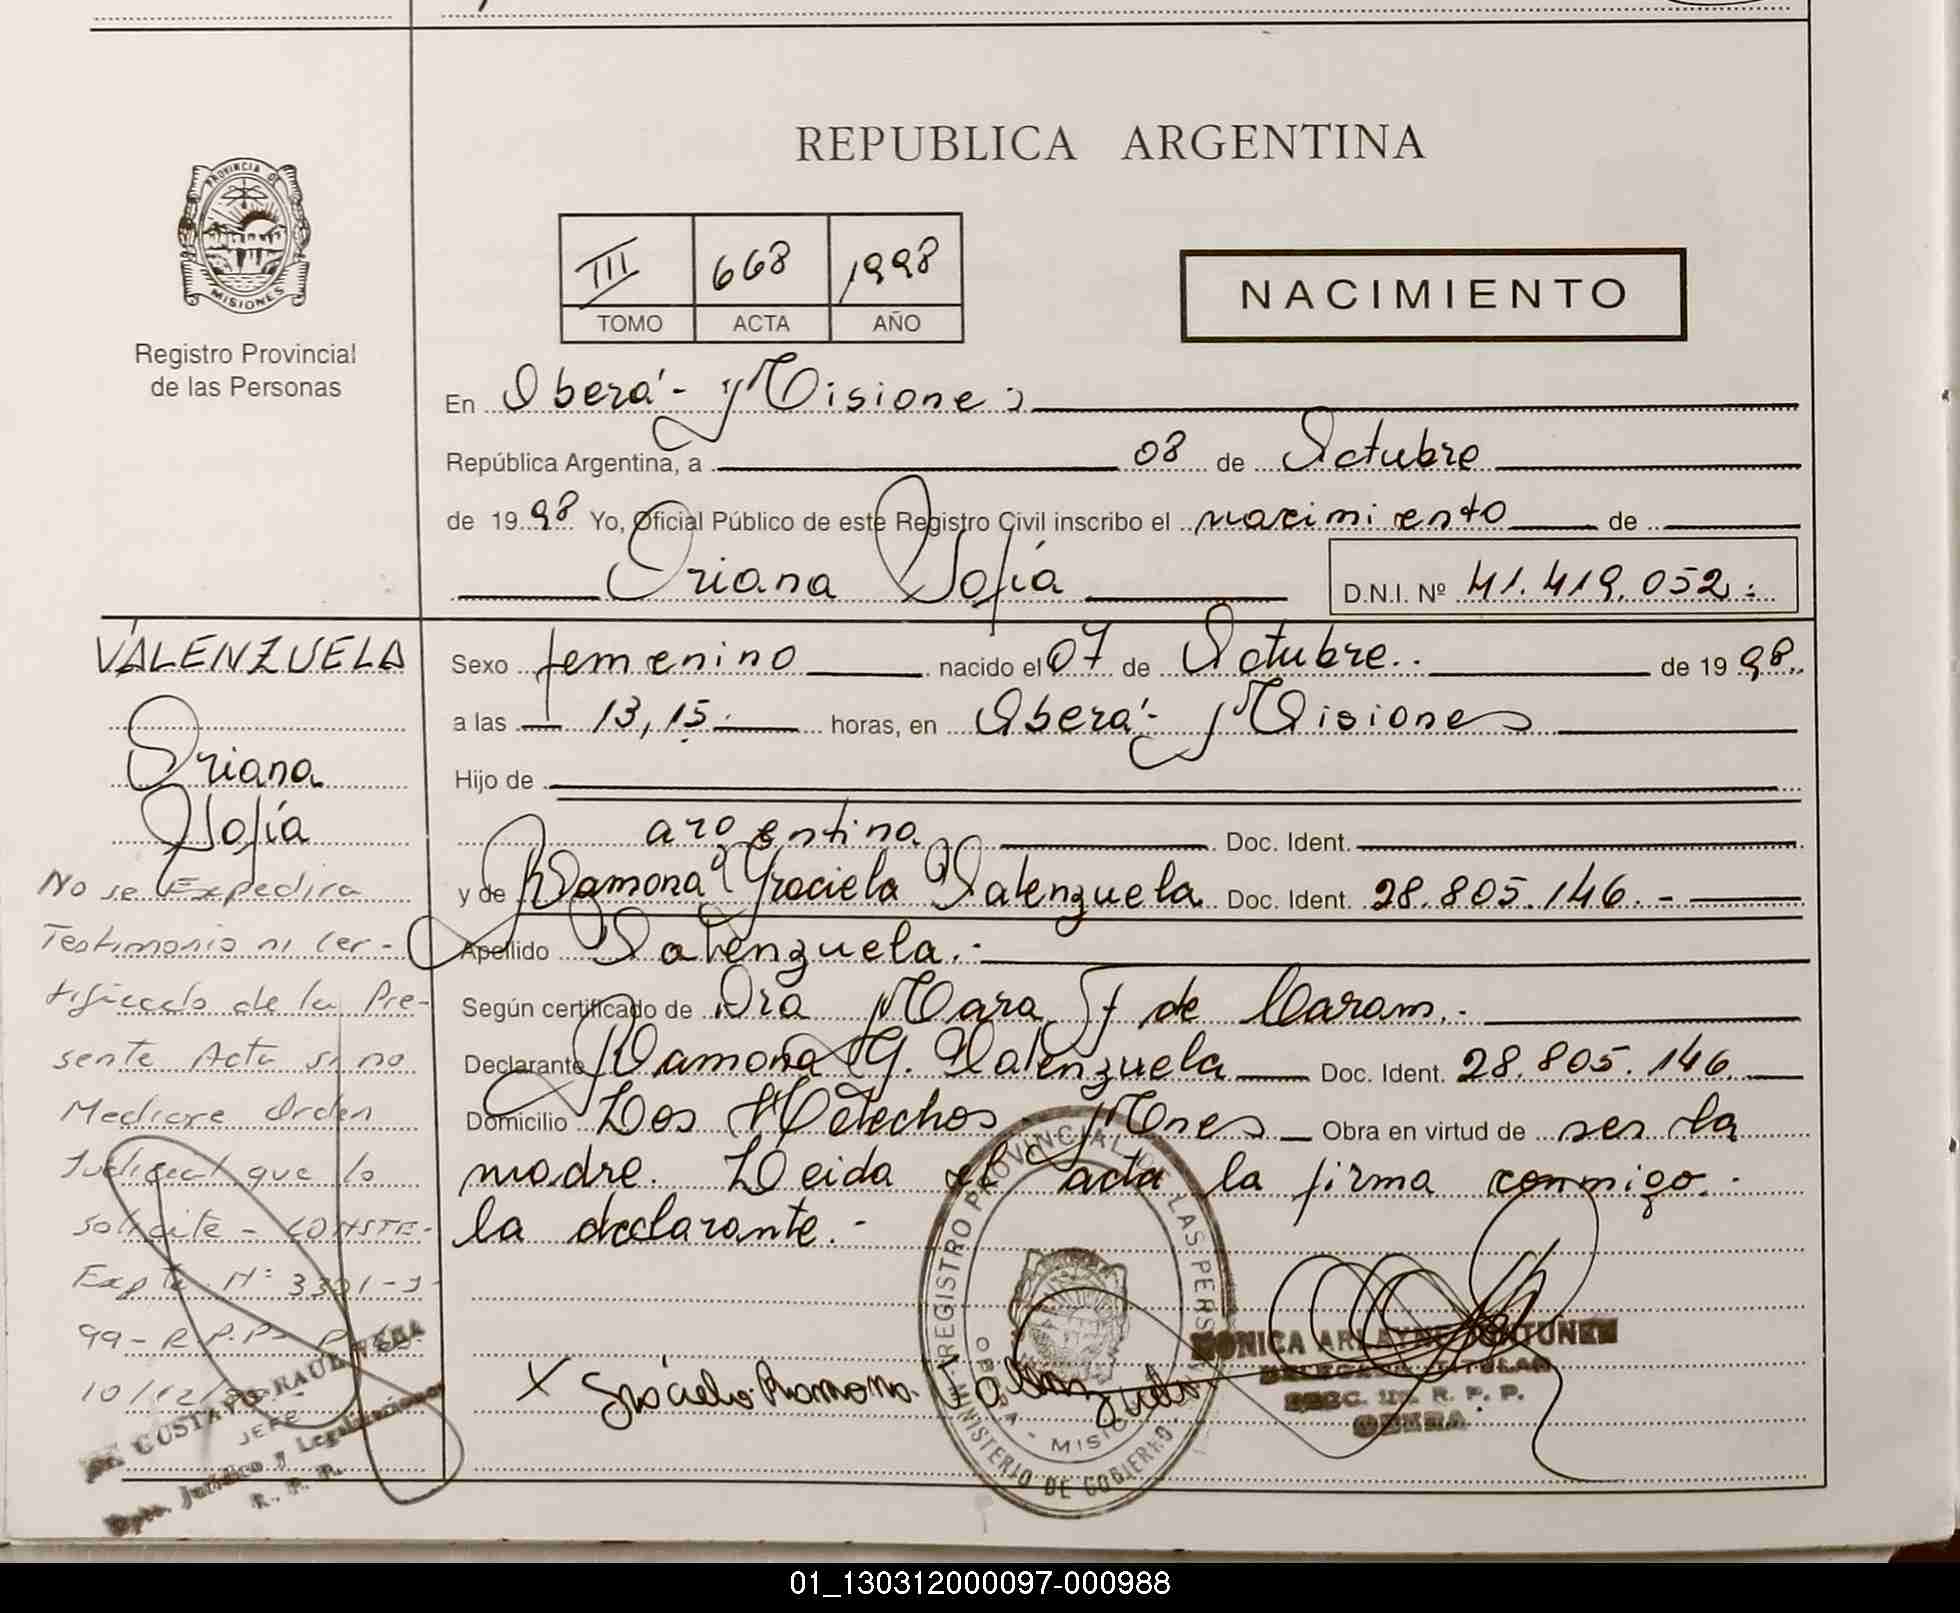 REPUBLICA ARGENTINA
PROVINCIA DE
MISIONES
Registro Provincial
de las Personas
III 668 1998
TOMO ACTA AÑO
NACIMIENTO
En Oberá - Misiones
República Argentina, a 08 de Octubre
de 1998 Yo, Oficial Público de este Registro Civil inscribo el nacimiento de
Oriana Sofía
D.N.I. Nº 41.419.052.
VALENZUELA
Oriana
Sofía
No se Expedira
Testimonio ni Cer-
tificado de la Pre-
sente Acta si no
Mediare Orden
Judicial que lo
solicite - CONSTE-
Expte. Nº 3391-J-
99-R.P.P.
10/12/
GUSTAVO RAUL
JEFE
Dpto. Jurídico y Legalizaciones
R. P. P.
Sexo femenino nacido el 07 de Octubre.. de 1998..
a las 13,15.- horas, en Oberá - Misiones
Hijo de
argentina Doc. Ident.
y de Ramona Graciela Valenzuela Doc. Ident. 28.805.146.-
Apellido Valenzuela.-
Según certificado de Dra Mara F de Caram.-
Declarante Ramona G. Valenzuela Doc. Ident. 28.805.146
Domicilio Los Helechos - Mnes Obra en virtud de ser la
madre. Leida el acta la firma conmigo.-
la declarante.-
REGISTRO PROVINCIAL DE LAS PERSONAS
MINISTERIO DE GOBIERNO
OBERA - MISIONES
X Graciela Ramona Valenzuela
MONICA
DELEGADA TITULAR
SECC. R. P. P.
OBERA
01_130312000097-000988